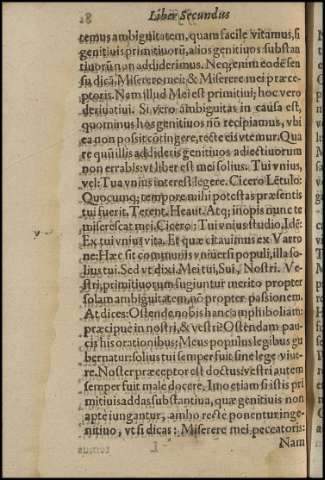 28 Liber Secundus
temus ambiguitatem, quam facile vitamus, si
genitiuis primitiuorũ, alios genitiuos substan
tiuorũ non addiderimus. Neq; enim eodẽ sen
su dicã. Miserere mei; & Miserere mei præce-
ptoris. Nam illud Mei est primitiui; hoc vero
deriuatiui. Si vero ambiguitas in causa est,
quominus hos genitiuos nõ recipiamus, vbi
ea non possit cõtingere, recte eis vtemur. Qua
re quũ illis addideris genitiuos adiectiuorum
non errabis: vt liber est mei solius. Tui vnius,
vel: Tua vnius interest legere. Cicero Lẽtulo:
Quocunq; tempore mihi potestas præsentis
tui fuerit. Terent. Heaut. Atq; inopis nunc te
miserescat mei. Cicero: Tui vnius studio, Idẽ:
Ex tui vnius vita. Et quæ citauimus ex Varro
ne: Hæc sit communis vniuersi populi, illa so-
lius tui. Sed vt dixi. Mei, tui, Sui, Nostri. Ve-
stri, primitiuorum fugiuntur merito propter
solam ambiguitatem, nõ propter passionem.
At dices: Ostende nobis hanc amphiboliam:
præcipue in nostri, & vestri? Ostendam pau-
cis his orationibus; Meus populus legibus gu
bernatur: solius tui semper fuit sine lege viue-
re. Noster præceptor est doctus: vestri autem
semper fuit male docere. Imo etiam si istis pri
mitiuis addas substantiua, quæ genitiuis non
apte iungantur, ambo recte ponentur in ge-
nitiuo, vt si dicas: Miserere mei peccatoris:
Nam